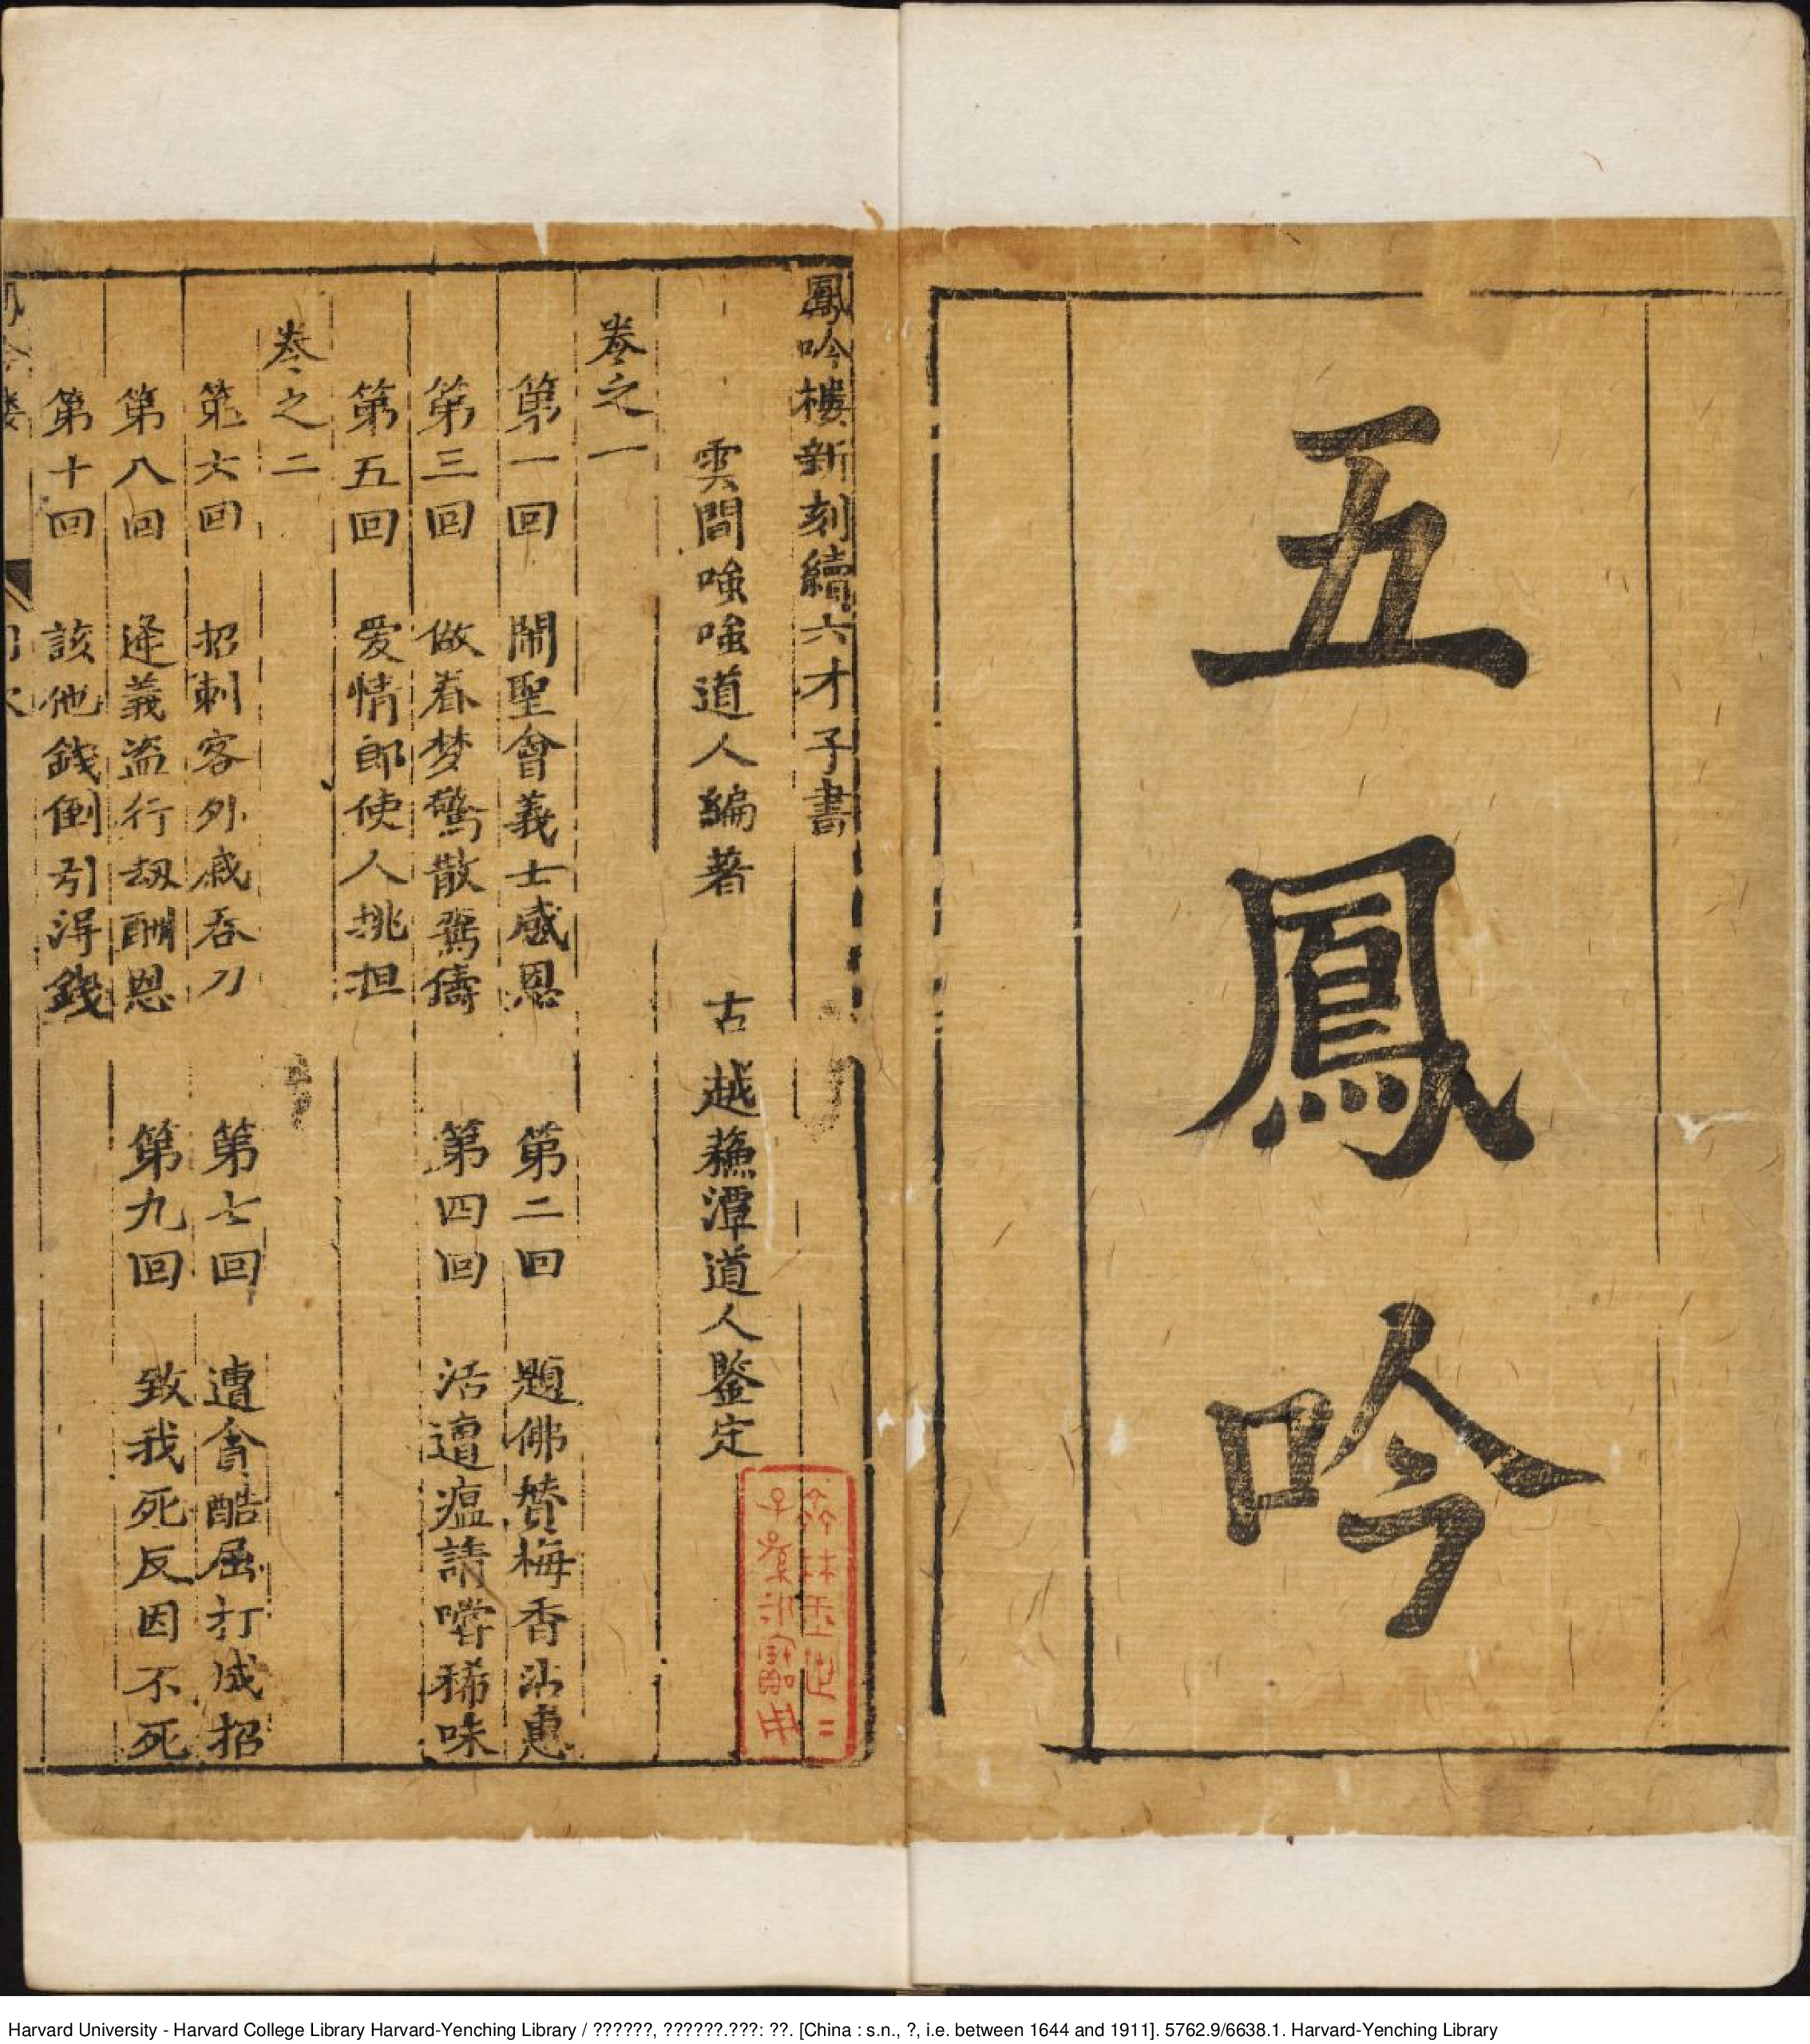 五鳳吟
鳳吟樓新刻續六才子書
雲間嗤嗤道人編著 古越蘓潭道人鑒定
卷之一
第一回 鬧聖會義士感恩 第二回 題佛賛梅香沾惠
第三回 做春梦驚散鴛儔 第四回 活遭瘟請嚐稀味
第五回 爱情郎使人挑担
卷之二
第六回 招刺客外戚吞刀 第七回 遭貪酷屈打成招
第八回 逢義盗行刼酬恩 第九回 致我死反因不死
第十回 該他錢倒引得錢
Harvard University - Harvard College Library Harvard-Yenching Library / ??????, ??????.???: ??. [China : s.n., ?, i.e. between 1644 and 1911]. 5762.9/6638.1. Harvard-Yenching Library